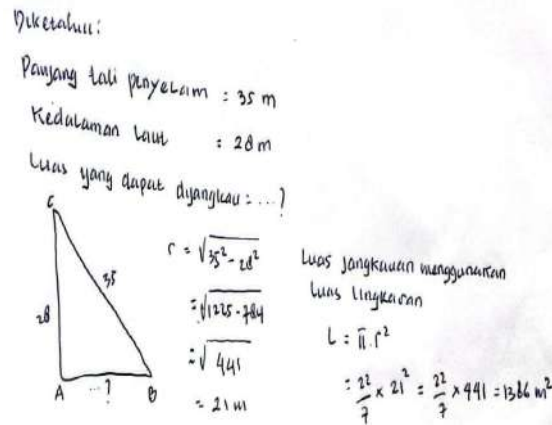 Diketahui:
Panjang tali penyelam = 35 m
Kedalaman laut : 28 m
Luas yang dapat dijangkau = ...?
C
35
28
A ...? B
r = √35² - 28²
= √1225 - 784
= √441
= 21 m
Luas jangkauan menggunakan
Luas lingkaran
L = π.r²
= 22/7 × 21² = 22/7 × 441 = 1386 m²